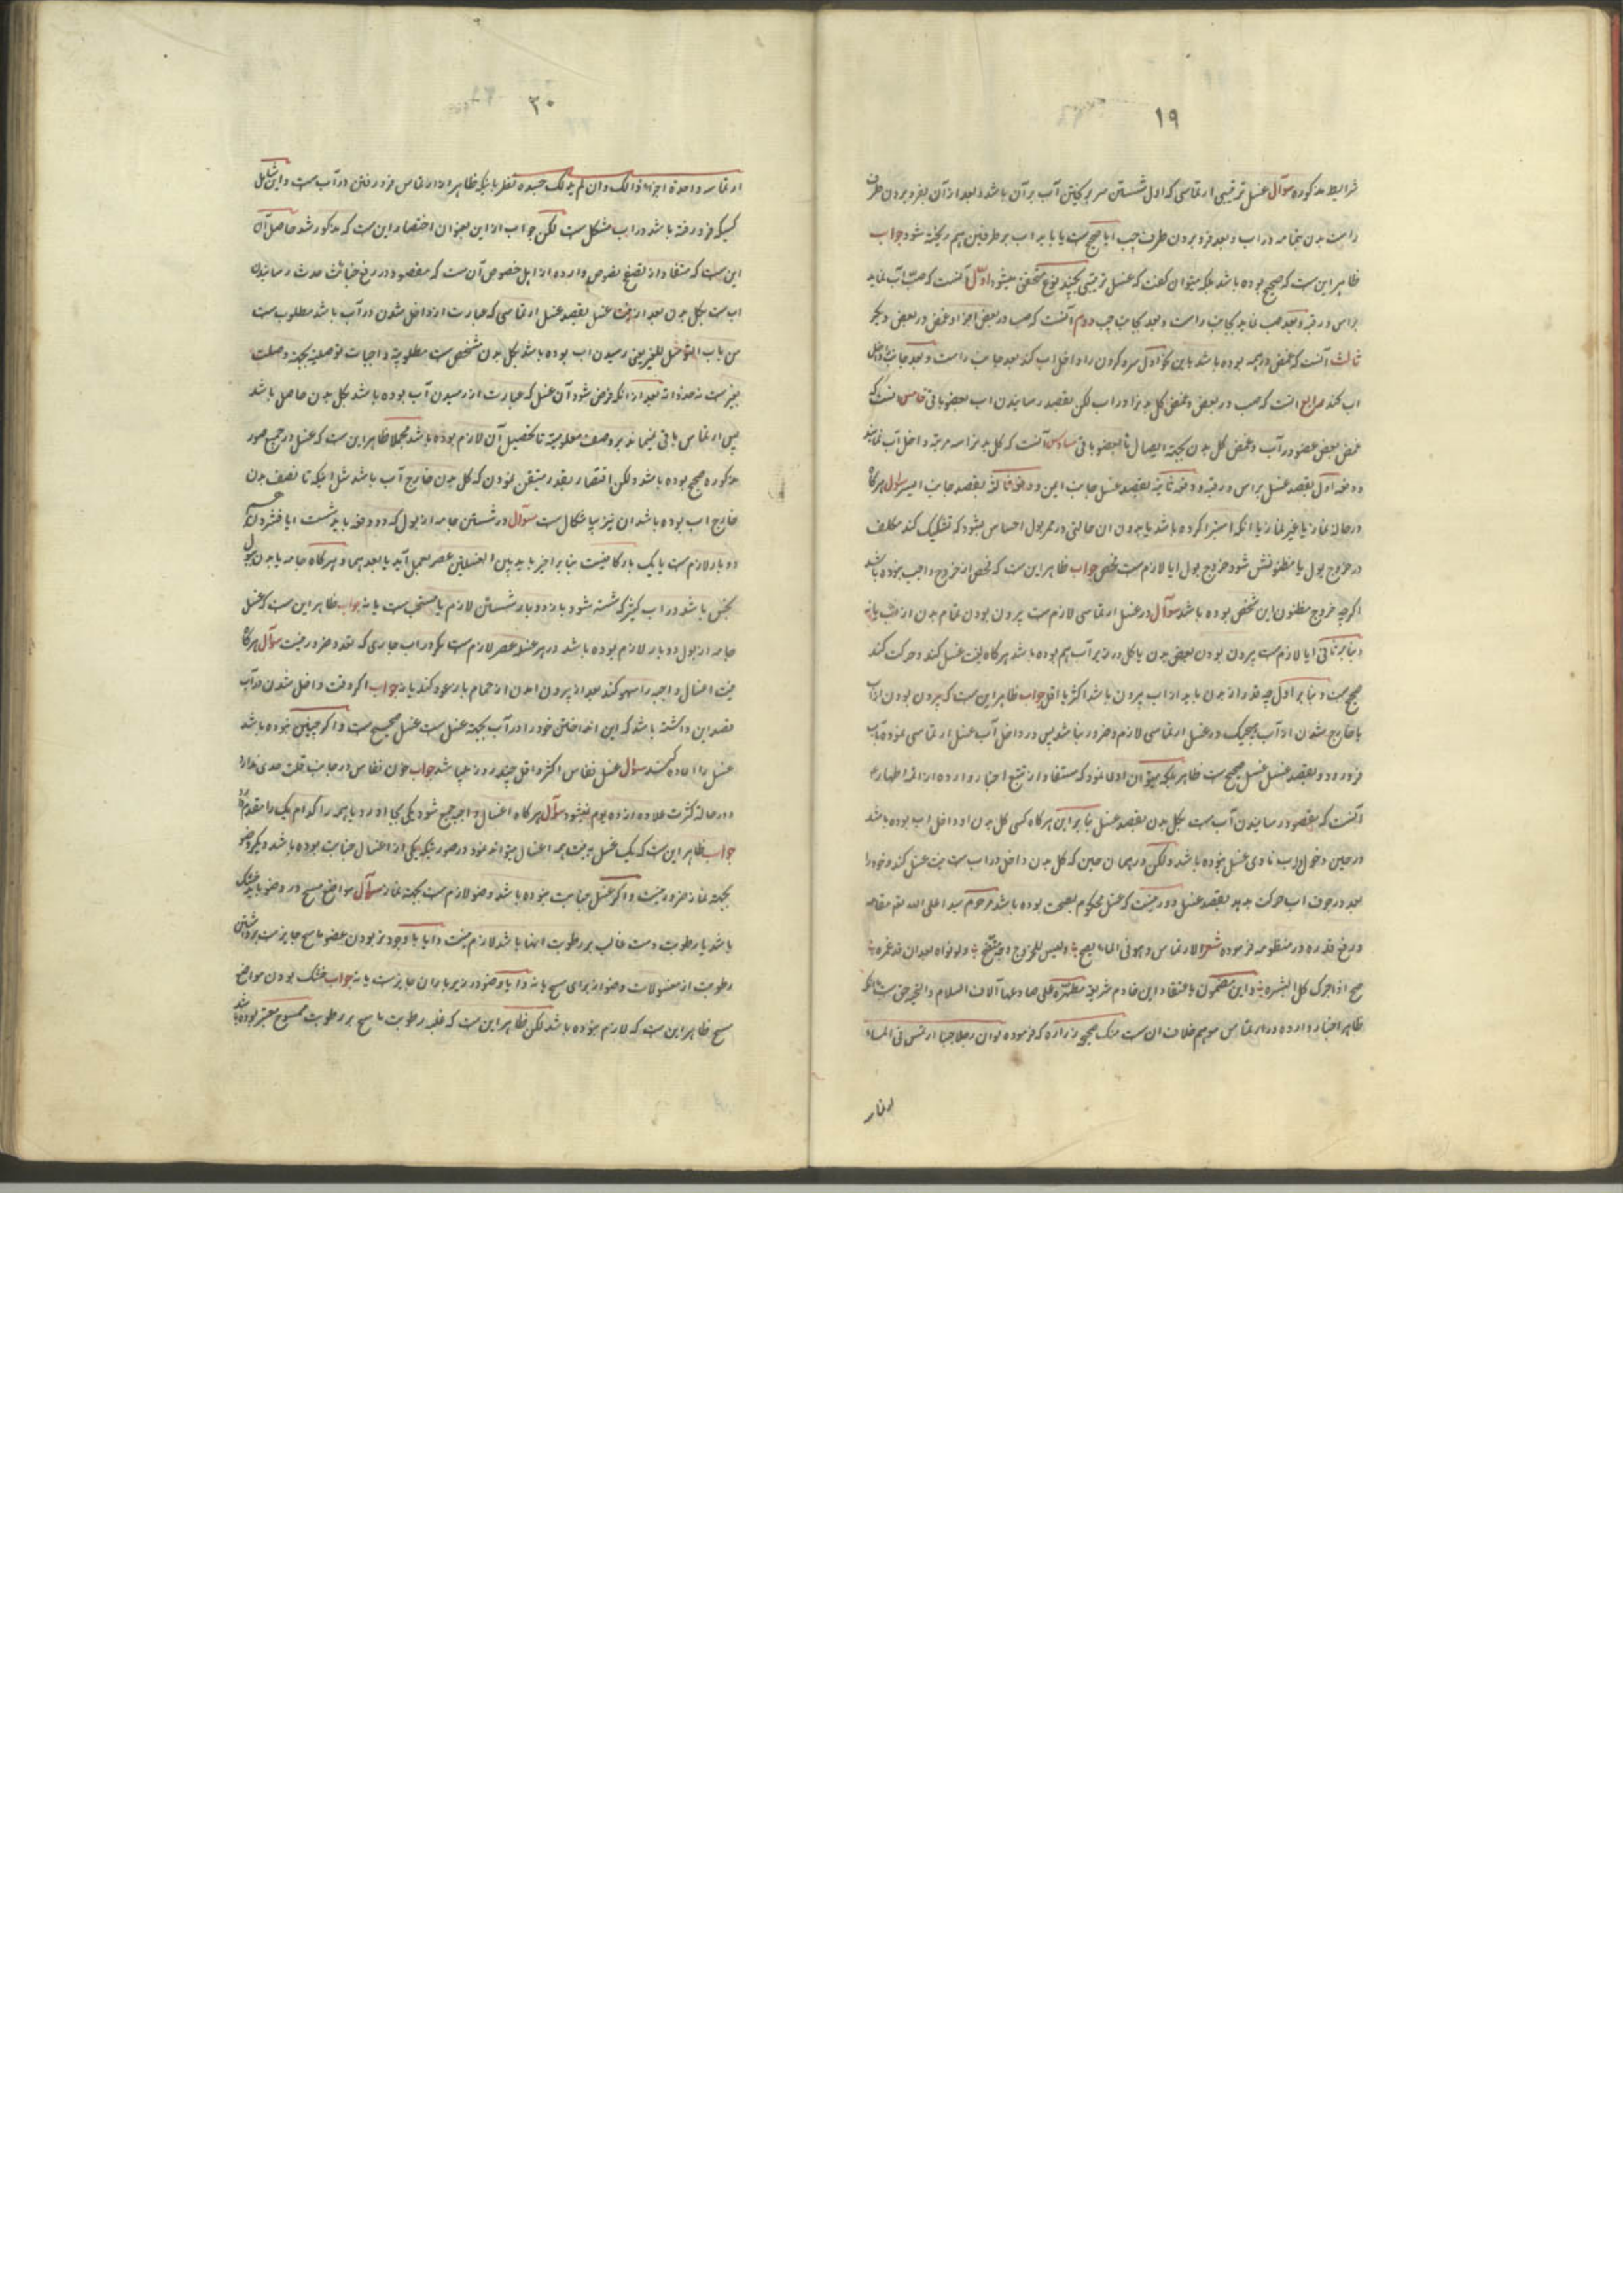 ۱۹
شرایط مذکوره سوآل غسل ترتیبی ارتماسی که اول شستن سر بریختن آب بر آن باشد و بعد از آن بفرو بردن طرف
راست بدن بتمامه در اب و بعد فرو بردن طرف چپ ایا صحیح ست یا باید اب بر طرفین هم ریخته شود جواب
ظاهر این ست که صحیح بوده باشد بلکه میتوان گفت که غسل ترتیبی بچند نوع متحقق میشود اول آنست که صب آب نماید
براس و رقبه و بعد صب نماید بجانب راست و بعد بجانب چپ دوم آنست که صب در بعض اجزا و غمض در بعض دیگر
ثالث آنست که غمض در همه بوده باشد باین نحو اول سر و گردن را داخل اب کند بعد جانب راست و بعد جانب چپ داخل
اب کند رابع آنست که صب در بعض و غمض کل بدن را در اب لکن بقصد رسانیدن اب ببعض باقی خامس آنست که
غمض بعض عضو در آب و غمض کل بدن بجهة ایصال تا ببعض باقی سادس آنست که کل بدن را سه مرتبه داخل آب نماید
دفعه اول بقصد غسل براس و رقبه و دفعه ثانیه بقصد غسل جانب ایمن و دفعه ثالثه بقصد جانب ایسر سوال هرگاه
در حالة نماز یا غیر نماز با آنکه استبرا کرده باشد یا بدون ان حالتی در ممر بول احساس بشود که تشکیک کند مکلف
در خروج بول یا مظنونش شود خروج بول ایا لازم ست فحص جواب ظاهر این ست که فحص از خروج واجب نبوده باشد
اگرچه خروج مظنون این شخص بوده باشد سوآل در غسل ارتماسی لازم ست بیرون بودن تمام بدن از آب یا نه
و بنا بر ثانی ایا لازم ست بیرون بودن بعض بدن یا کل در زیر آب هم بوده باشد هرگاه نیت غسل کند و حرکت کند
صحیح ست و بنا بر اول چه قدر از بدن باید از اب بیرون باشد اکثر یا اقل جواب ظاهر این ست که بیرون بودن از آب
یا خارج شدن از آب هیچیک در غسل ارتماسی لازم و ضرور نباشد پس در داخل آب غسل ارتماسی نموده بآب
فرو رود و بقصد غسل غسل صحیح ست ظاهر بلکه میتوان ادعا نمود که مستفاد از تتبع اخبار وارده از ائمه اطهار ع
آنست که مقصود رسانیدن آب ست بکل بدن بقصد غسل بنا بر این هرگاه کسی کل بدن او داخل اب بوده باشد
در حین دخول اب ناوی غسل نبوده باشد ولکن در همان حین که کل بدن داخل در اب ست نیت غسل کند و خود را
بعد در جوف اب حرکت بدهد بقصد غسل دور نیست که غسل محکوم بصحت بوده باشد مرحوم سید اعلی الله تعم مقامه
و رفع قدره در منظومه فرموده شعر الارتماس وهو فی الماء یصح ولیس للخروج وجه متضح ولو نواه بعد ان قد غمره
صح اذا حرک کل البشره و این مضمون باعتقاد این خادم شریعة مطهره علی صادعها آلاف السلام والتحیه حق ست
ظاهر اخبار وارده در ارتماس موهم خلاف ان ست صحیح زراره که فرموده لو ان رجلا جنبا ارتمس فی الماء
ارتماسة
۳۰
ارتماسه واحدة اجزاه ذالک وان لم یدلک جسده نظر باینکه ظاهر از ارتماس فرو رفتن در آب ست و این شامل
کسیکه فرو رفته باشد در اب مشکل ست لکن جواب از این بعنوان اختصار این ست که مذکور شد حاصل آن
این ست که مستفاد از تصفح نصوص وارده از اهل خصوص آن ست که مقصود در رفع خباثت حدث رسانیدن
اب ست بکل بدن بعد از نیت غسل بقصد غسل ارتماسی که عبارت از داخل شدن در آب باشد مطلوب ست
من باب التوصل للغیر یعنی رسیدن اب بوده باشد بکل بدن مشخص ست مطلوبیة واجبات توصلیه بجهة وصلت
بغیر ست نه حد ذاته بعد از آنکه فرض شود آن غسل که عبارت از رسیدن آب بوده باشد بکل بدن حاصل باشد
پس ارتماس باقی نمیماند بر وصف مطلوبیة تا تحصیل آن لازم بوده باشد مجملا ظاهر این ست که غسل در جمیع صور
مذکوره صحیح بوده باشد ولکن اقتصار بقدر متیقن نمودن که کل بدن خارج آب باشد مثل اینکه تا نصف بدن
خارج اب بوده باشد ان نیز بی اشکال ست سوآل در شستن جامه از بول که دو دفعه باید شست ایا فشردن هم
دو بار لازم ست یا یک بار کافیست بنا بر اخیر باید بین الغسلتین عصر بعمل آید یا بعدهما و هرگاه جامه یا بدن ببول
نجس باشد در اب کثیر که شسته شود باز دو بار شستن لازم یا مستحب ست یا نه جواب ظاهر این ست که غسل
جامه از بول دو بار لازم بوده باشد در هر غسله عصر لازم ست مگر در اب جاری که تعدد ضرور نیست سوآل هرگاه
نیت اغسال واجبه را سهو کند بعد از بیرون امدن از حمام باز عود کند یا نه جواب اگر وقت داخل شدن در آب
قصد این داشته باشد که این انداختن خود را در آب بجهة غسل ست غسل صحیح ست و اگر چنین نبوده باشد
غسل را اعاده کند سوآل غسل نفاس اکثر و اقل چند روز میباشد جواب خون نفاس در جانب قلت حدی ندارد
و در حالة کثرت علاوه از ده یوم نمیشود سوآل هرگاه اغسال واجبه جمع شود یکی بجا آورد یا همه را کدام یک را مقدم دارد
جواب ظاهر این ست که یک غسل به نیت همه اغسال میتواند نمود در صورتیکه یکی از اغسال جنابت بوده باشد دیگر وضو
بجهة نماز ضرور نیست و اگر غسل جنابت نبوده باشد وضو لازم ست بجهة نماز سوآل مواضع مسح در وضو باید خشک
باشد یا رطوبت دست غالب بر رطوبت انها باشد لازم نیست و ایا با وجود تر بودن عضو ماسح جایز ست برداشتن
رطوبت از مغسولات وضو از برای مسح یا نه و ایا وضو در زیر باران جایز ست یا نه جواب خشک بودن مواضع
مسح ظاهر این ست که لازم نبوده باشد لکن ظاهر این ست که غلبه رطوبت ماسح بر رطوبت ممسوح معتبر بوده باشد